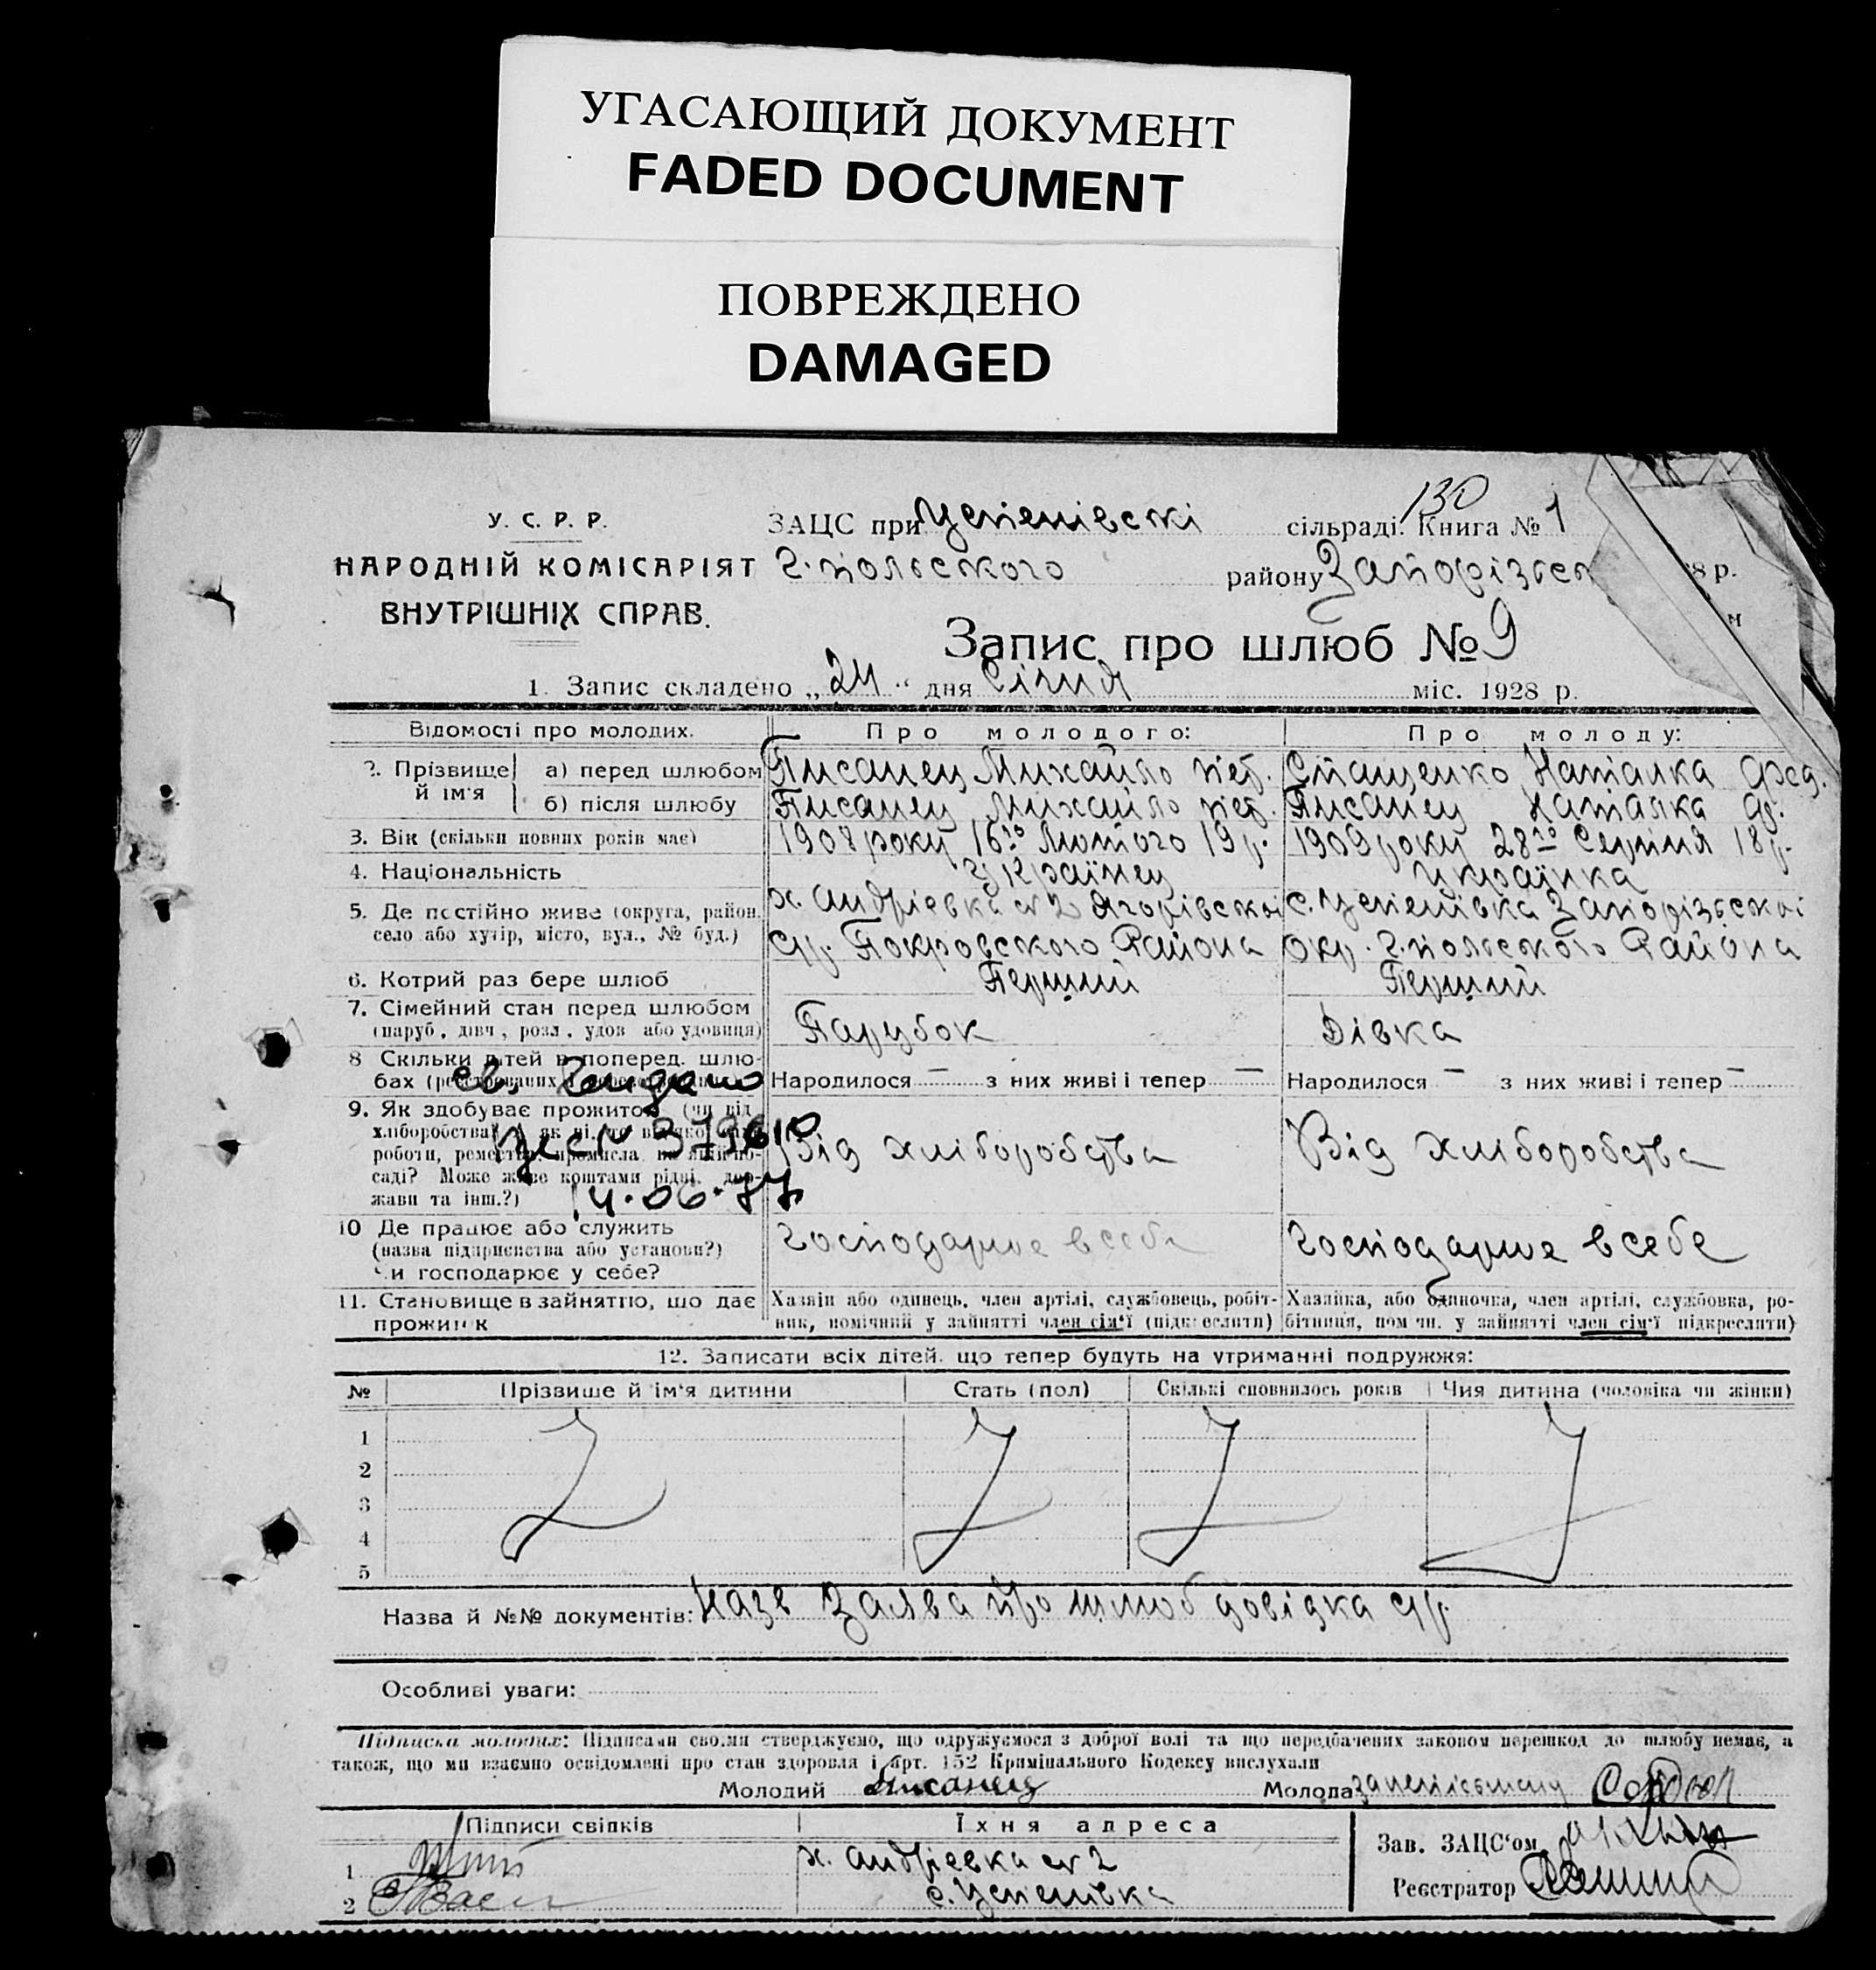 УГАСАЮЩИЙ ДОКУМЕНТ
FADED DOCUMENT
ПОВРЕЖДЕНО
DAMAGED
130
У. С. Р. Р.
НАРОДНІЙ КОМІСАРІЯТ
ВНУТРІШНІХ СПРАВ.
ЗАЦС при Успенівскі сільраді. Книга № 1
Г.польского району Запорізьск
8 р.
м
Запис про шлюб № 9
1. Запис складено „24“ дня Січня міс. 1928 р.
Відомості про молодих.
Про молодого:
Про молоду:
2. Прізвище й ім'я
а) перед шлюбом
Писанец Михайло Пет.
Стащенко Наталка Фед.
б) після шлюбу
Писанец Михайло Пет.
Писанец Наталка Ф.
3. Вік (скільки повних років має)
1908 року 16го Лютого 19 р.
1909 року 28го Серпня 18 р.
4. Національність
Українец
Українка
5. Де постійно живе (округа, район,
село або хутір, місто, вул., № буд.)
х. Андрієвка № 2 Ягорівской
ср. Покровского Района
с. Успенівка Запорізьскої
окр. Г.польского Района
6. Котрий раз бере шлюб
Перший
Перший
7. Сімейний стан перед шлюбом
(паруб., дівч., розл., удов. або удовиця)
Парубок
Дівка
8 Скільки дітей в поперед. шлю-
бах
Народилося — з них живі і тепер —
Народилося — з них живі і тепер —
св.
14.06.77
9. Як здобуває прожиток (чи від
хліборобства?
роботи,
саді? Може живе коштами рідні, дер-
жави та інш.?)
Від хліборобства
Від хліборобства
10 Де працює або служить
(назва підприємства або установи?)
Чи господарює у себе?
Господарює в себе
Господарює в себе
11. Становище в зайняттю, що дає
прожиток
Хазяін або одинець, член артілі, службовець, робіт-
ник, помічний у зайнятті член сім'ї (підкреслити)
Хазяйка, або одиночка, член артілі, службовка, ро-
бітниця, помічн. у зайнятті член сім'ї підкреслити)
12. Записати всіх дітей, що тепер будуть на утриманні подружжя:
№ Прізвище й ім'я дитини Стать (пол) Скількі сповнилось років Чия дитина (чоловіка чи жінки)
1
2
3
4
5
Назва й №№ документів: Назв Заява про шлюб довідка ср.
Особливі уваги:
Підписка молодих: Підписами своїми стверджуємо, що одружуємося з доброї волі та що передбачених законом перешкод до шлюбу немає, а
також, що ми взаємно освідомлені про стан здоровля і арт. 152 Кримінального Кодексу вислухали
Молодий Писанец
Молода
Підписи свідків
Їхня адреса
1
х. Андрієвка № 2
2
с. Успенівка
Зав. ЗАЦС'ом
Реєстратор